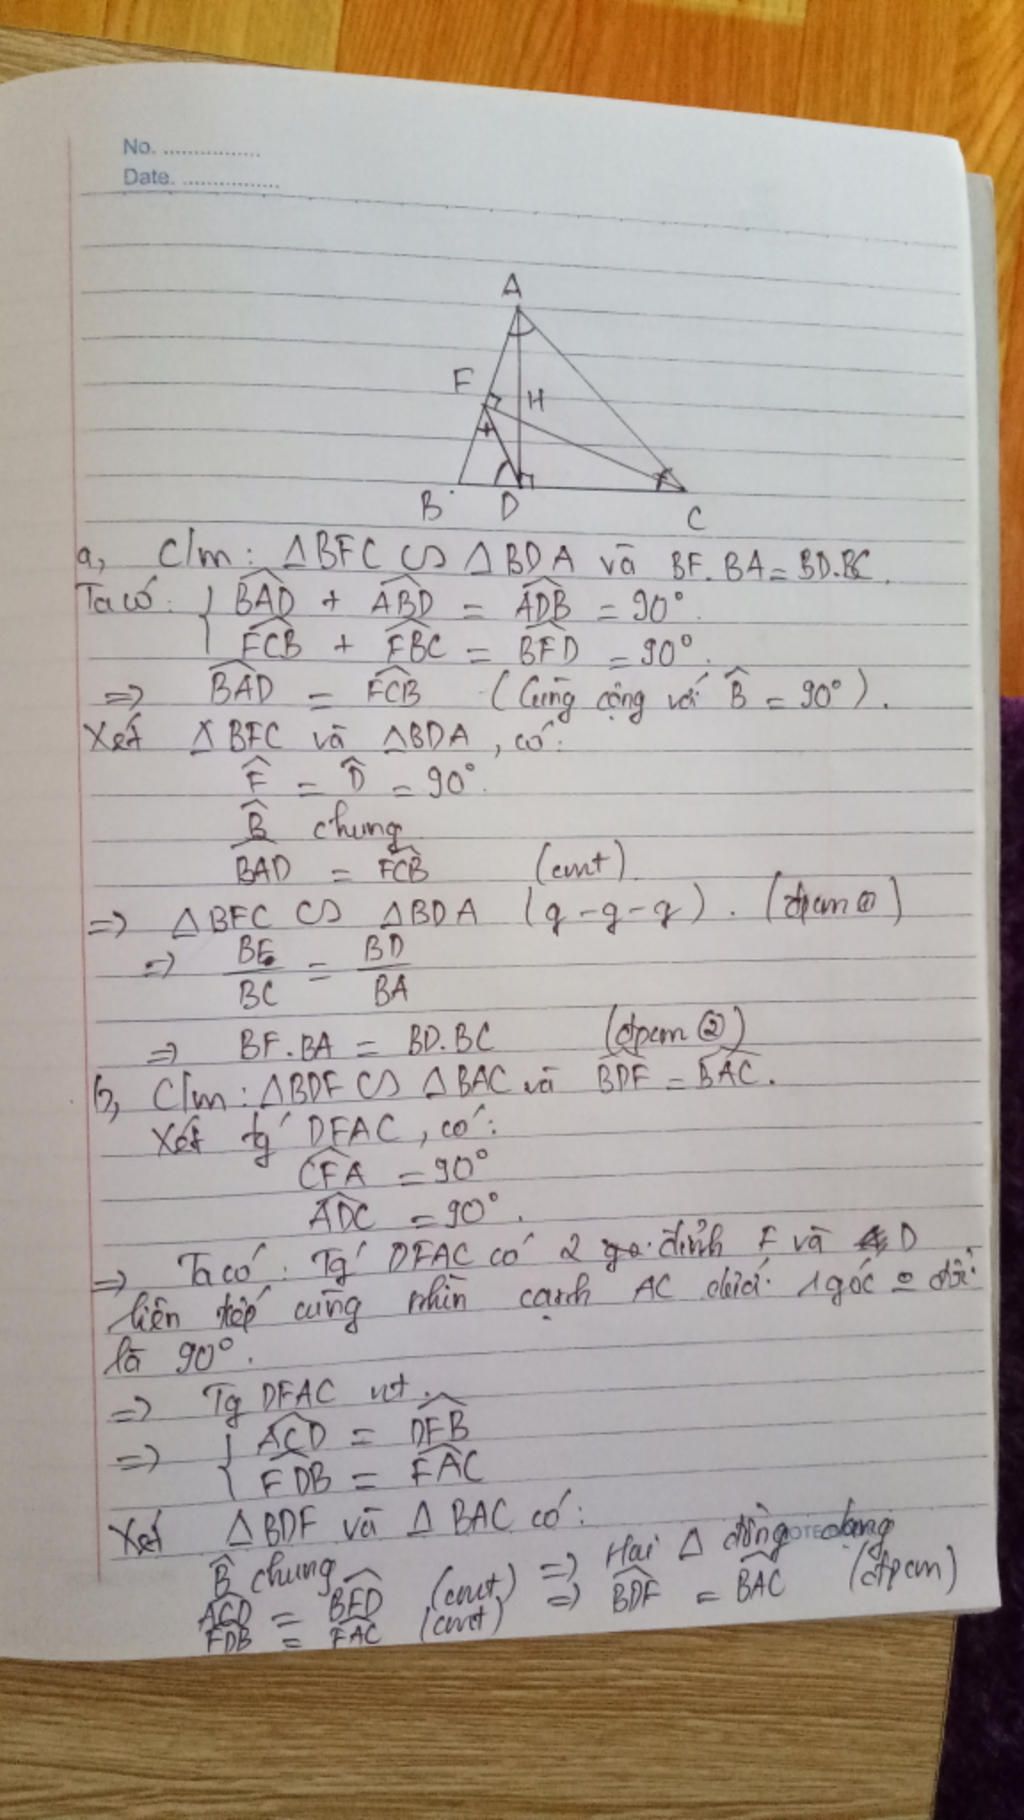 No. ................
Date. ................
A
F
H
B
D
C
a, C/m: ΔBFC ∽ ΔBDA và BF.BA = BD.BC.
Ta có: { BAD̂ + ABD̂ = ADB̂ = 90°.
FCB̂ + FBĈ = BFD̂ = 90°.
=> BAD̂ = FCB̂ (Cùng cộng với B̂ = 90°).
Xét ΔBFC và ΔBDA, có:
F̂ = D̂ = 90°.
B̂ chung
BAD̂ = FCB̂ (cmt)
=> ΔBFC ∽ ΔBDA (g-g-g). (đpcm ①)
=> BF/BC = BD/BA
=> BF.BA = BD.BC (đpcm ②)
b, C/m: ΔBDF ∽ ΔBAC và BDF̂ = BAĈ.
Xét tg´ DFAC, có:
CFÂ = 90°
ADĈ = 90°.
=> Ta có: Tg´ DFAC có 2 đỉnh F và D
liên tiếp cùng nhìn cạnh AC dưới 1 góc
là 90°.
=> Tg DFAC nt.
=> { ACD̂ = DFB̂
FDB̂ = FAĈ
Xét ΔBDF và ΔBAC có:
B̂ chung => Hai Δ đồng dạng
ACD̂ = BFD̂ (cmt) => BDF̂ = BAĈ (đpcm)
FDB̂ = FAĈ (cmt)